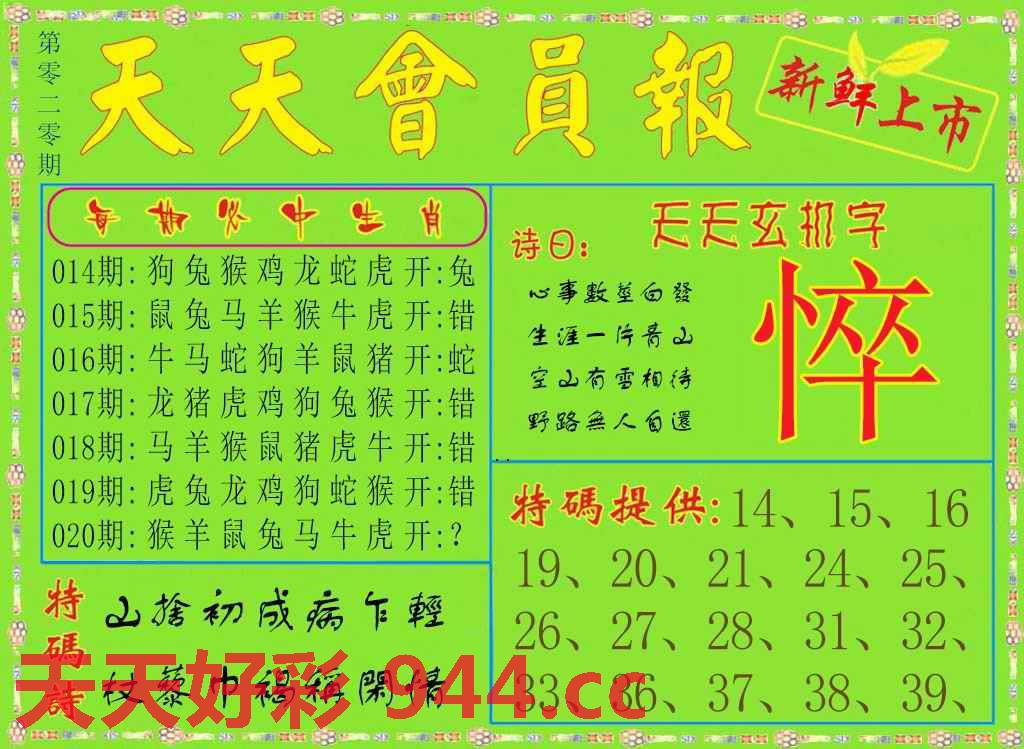 第零二零期
天天會員報
新鮮上市
每期必中生肖
014期:狗兔猴鸡龙蛇虎开:兔
015期:鼠兔马羊猴牛虎开:错
016期:牛马蛇狗羊鼠猪开:蛇
017期:龙猪虎鸡狗兔猴开:错
018期:马羊猴鼠猪虎牛开:错
019期:虎兔龙鸡狗蛇猴开:错
020期:猴羊鼠兔马牛虎开:?
天天玄机字
诗曰:
心事數莖白發
生涯一片青山
空山有雪相待
野路無人自還
悴
特碼提供:14、15、16
19、20、21、24、25、
26、27、28、31、32、
33、36、37、38、39、
特碼詩
山捨初成病乍輕
杖藜巾褐稱閑情
天天好彩944.cc